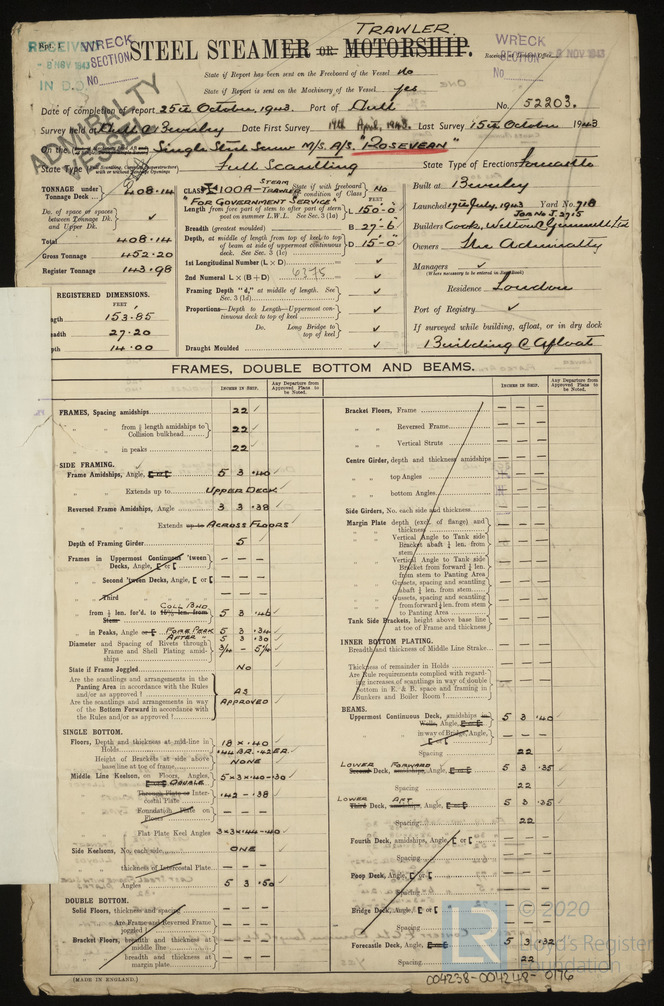 TRAWLER.
Rpt. 1
RECEIVED
- 8 NOV 1943
IN D.O.
WRECK
SECTION
No
STEEL STEAMER OR MOTORSHIP.
WRECK
SECTION
8 NOV 1943
No
ADMIRALTY
VESSEL
State if Report has been sent on the Freeboard of the Vessel No
State if Report is sent on the Machinery of the Vessel yes
Date of completion of report 25th October 1943. Port of Hull No. 52203.
Survey held at Hull & Beverley Date First Survey 19th April, 1943. Last Survey 15th October 1943
On the Single Steel Screw M/S. A/S. "ROSEVEAN"
State Type Full Scantling State Type of Erections Forecastle
TONNAGE under Tonnage Deck 408.14
Do. of space or spaces between Tonnage Dk. and Upper Dk. ✓
Total 408.14
Gross Tonnage 452.20
Register Tonnage 143.98
REGISTERED DIMENSIONS.
FEET
Length 153.85
Breadth 27.20
Depth 14.00
CLASS ✠ 100A- STEAM TRAWLER State if with freeboard condition of Class No
"FOR GOVERNMENT SERVICE"
FEET
Length from fore part of stem to after part of stern post on summer L.W.L. See Sec. 3 (1a) L 150-0
Breadth (greatest moulded) B 27-6
Depth, at middle of length from top of keel to top of beam at side of uppermost continuous deck. See Sec. 3 (1c) D 15-0
1st Longitudinal Number (L × D) ✓
2nd Numeral L × (B + D) 6375 ✓
Framing Depth "d," at middle of length. See Sec. 3 (1d) ✓
Proportions—Depth to Length—Uppermost continuous deck to top of keel ✓
Do. Long Bridge to top of keel ✓
Draught Moulded ✓
Built at Beverley
Launched 17th July, 1943 Yard No. 718
JOB No J.2715
Builders Cook, Welton & Gemmell Ltd
Owners The Admiralty
Managers ✓
(Where necessary to be entered in Reg. Book)
Residence London
Port of Registry ✓
If surveyed while building, afloat, or in dry dock
Building & Afloat
FRAMES, DOUBLE BOTTOM AND BEAMS.
INCHES IN SHIP. Any Departure from Approved Plans to be Noted.
INCHES IN SHIP. Any Departure from Approved Plans to be Noted.
FRAMES, Spacing amidships 22 ✓
" " from ⅕ length amidships to Collision bulkhead 22 ✓
" " in peaks 22 ✓
SIDE FRAMING.
Frame Amidships, Angle, 5 3 .40
" " Extends up to UPPER DECK
Reversed Frame Amidships, Angle 3 3 .38
" " Extends up to ACROSS FLOORS
Depth of Framing Girder 5
Frames in Uppermost Continuous 'tween Decks, Angle, [ or [ — — —
" Second 'tween Decks, Angle, [ or [ — — —
" Third " " " " — — —
" from ⅕ len. for'd. to COLL BHD 15% len. from Stem 5 3 .46
" in Peaks, Angle or [ FORE PEAK 5 3 .34
AFTER " 5 3 .30
Diameter and Spacing of Rivets through Frame and Shell Plating amidships 3/4 — 5 1/4
State if Frame Joggled No
Are the scantlings and arrangements in the Panting Area in accordance with the Rules and/or as approved ?
Are the scantlings and arrangements in way of the Bottom Forward in accordance with the Rules and/or as approved ?
AS APPROVED
SINGLE BOTTOM.
Floors, Depth and thickness at mid-line in Holds 18 × .40
.44 BR. .42 ER.
Height of Brackets at side above base line at toe of frame NONE
Middle Line Keelson, on Floors, Angles, DOUBLE 5×3×.40-.30
" " Through Plate or Intercostal Plate .42 - .38
" " Foundation Plate on Floors — — —
" " Flat Plate Keel Angles 3×3×.44-.40
Side Keelsons, No. each side ONE
" " thickness of Intercostal Plate — — —
" " Angles 5 3 .50
DOUBLE BOTTOM.
Solid Floors, thickness and spacing — — —
" " Are Frame and Reversed Frame joggled ? — — —
Bracket Floors, breadth and thickness at middle line — — —
" " breadth and thickness at margin plate — — —
Bracket Floors, Frame — — —
" " Reversed Frame — — —
" " Vertical Struts — — —
Centre Girder, depth and thickness amidships — — —
" " top Angles — — —
" " bottom Angles — — —
Side Girders, No. each side and thickness — — —
Margin Plate depth (excl. of flange) and thickness — — —
" " Vertical Angle to Tank side Bracket abaft ¼ len. from stem — — —
" " Vertical Angle to Tank side Bracket from forward ¼ len. from stem to Panting Area — — —
" " Gussets, spacing and scantling abaft ¼ len. from stem — — —
" " Gussets, spacing and scantling from forward ¼ len. from stem to Panting Area — — —
Tank Side Brackets, height above base line at toe of Frame and thickness — — —
INNER BOTTOM PLATING.
Breadth and thickness of Middle Line Strake — — —
Thickness of remainder in Holds — — —
Are Rule requirements complied with regarding increases of scantlings in way of double bottom in E. & B. space and framing in Bunkers and Boiler Room ?
BEAMS.
Uppermost Continuous Deck, amidships in Wells, Angle, 5 3 .40
" " in way of Bridge, Angle, [ or [ — — —
" " Spacing 22
LOWER FORWARD
Second Deck, amidships, Angle, 5 3 .35
" " Spacing 22
LOWER AFT
Third Deck, amidships, Angle, 5 3 .35
" " Spacing 22
Fourth Deck, amidships, Angle, [ or [ — — —
" " Spacing — — —
Poop Deck, Angle, [ or [ — — —
" " Spacing — — —
Bridge Deck, Angle, [ or [ — — —
" " Spacing — — —
Forecastle Deck, Angle, 5 3 .32
" " Spacing 22
(MADE IN ENGLAND.)
LR
© 2020
Lloyd's Register
Foundation
004238-004248-0176